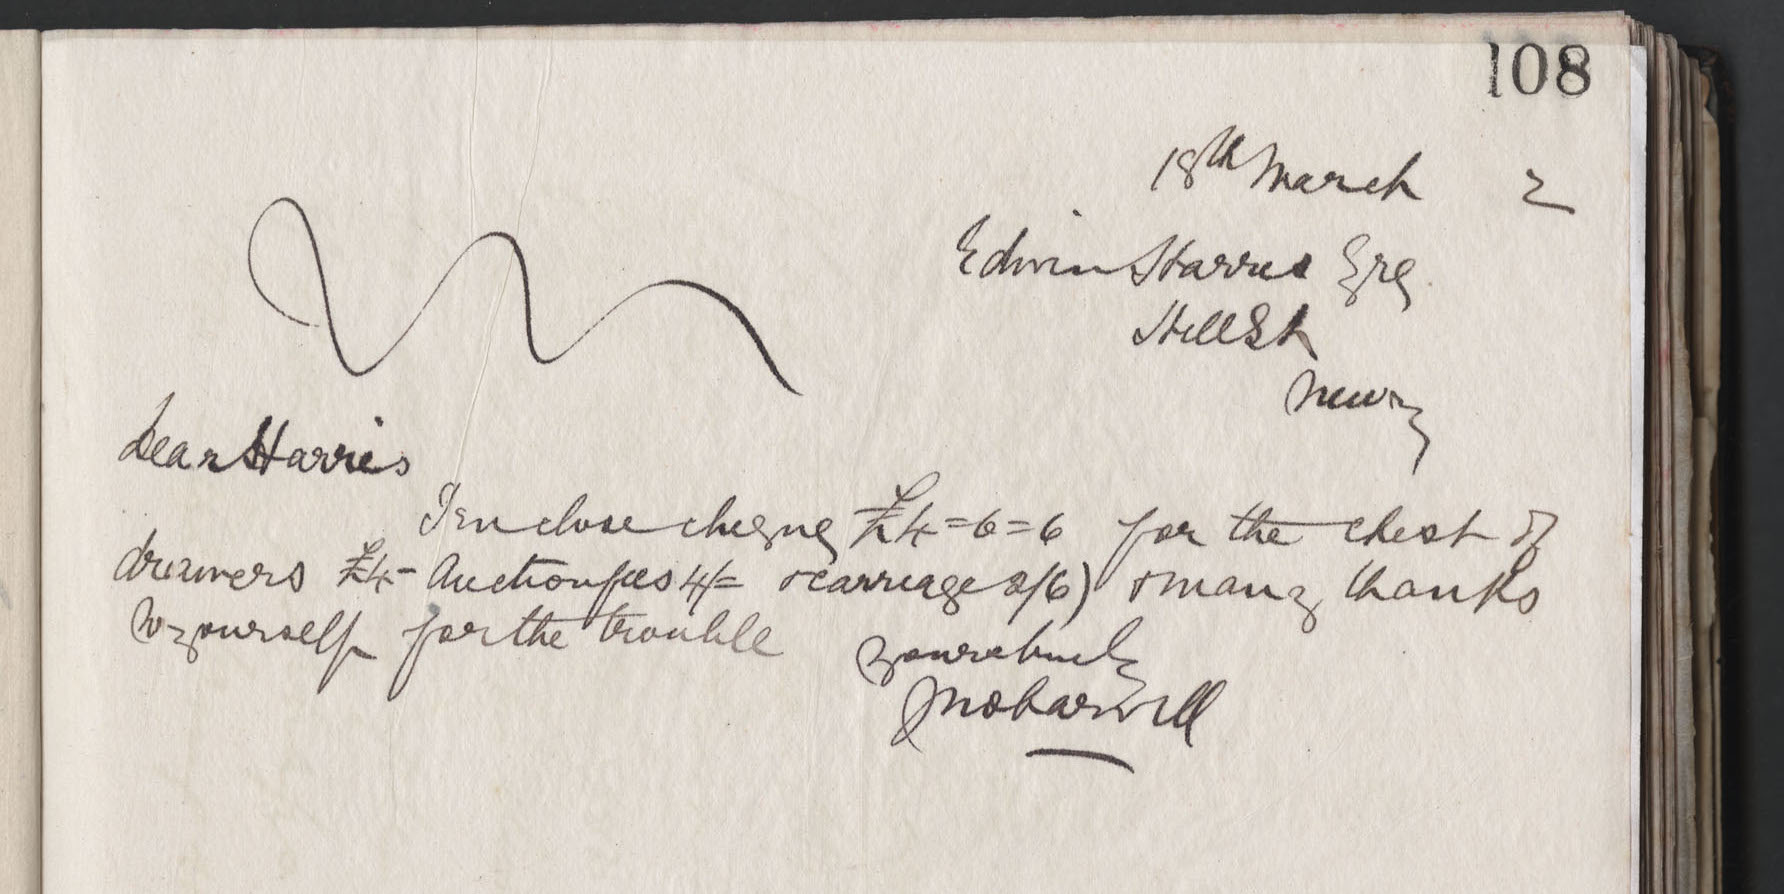 108
18th March 2
Edwin Harris Esq
Hill St
Newry
Dear Harris
I enclose cheque £4=6=6 for the chest of
drawers £4- Auction fees 4/= & carriage 2/6) & many thanks
to yourself for the trouble
Yours truly